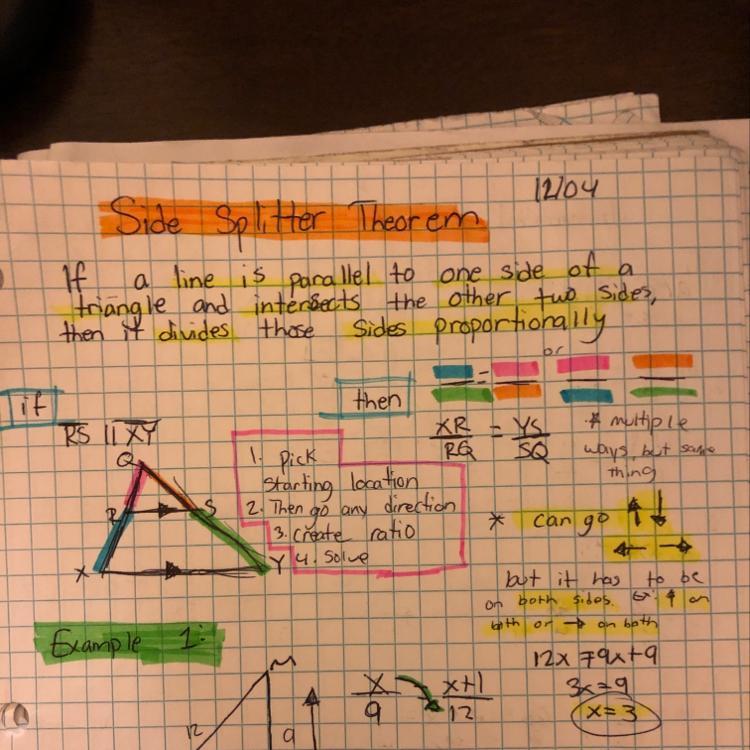 12/04
Side Splitter Theorem
If a line is parallel to one side of a
triangle and intersects the other two sides,
then it divides those sides proportionally
or
if
then
=
RS || XY
XR/RQ = YS/SQ
* multiple
ways, but same
thing
Q
R
S
X
Y
1. Pick
starting location
2. Then go any direction
3. create ratio
4. Solve
* can go ↑ ↓
← →
but it has to be
on both sides. ↑ on
both or → on both
Example 1:
M
12
9
x/9 x+1/12
12x = 9x+9
3x = 9
x = 3